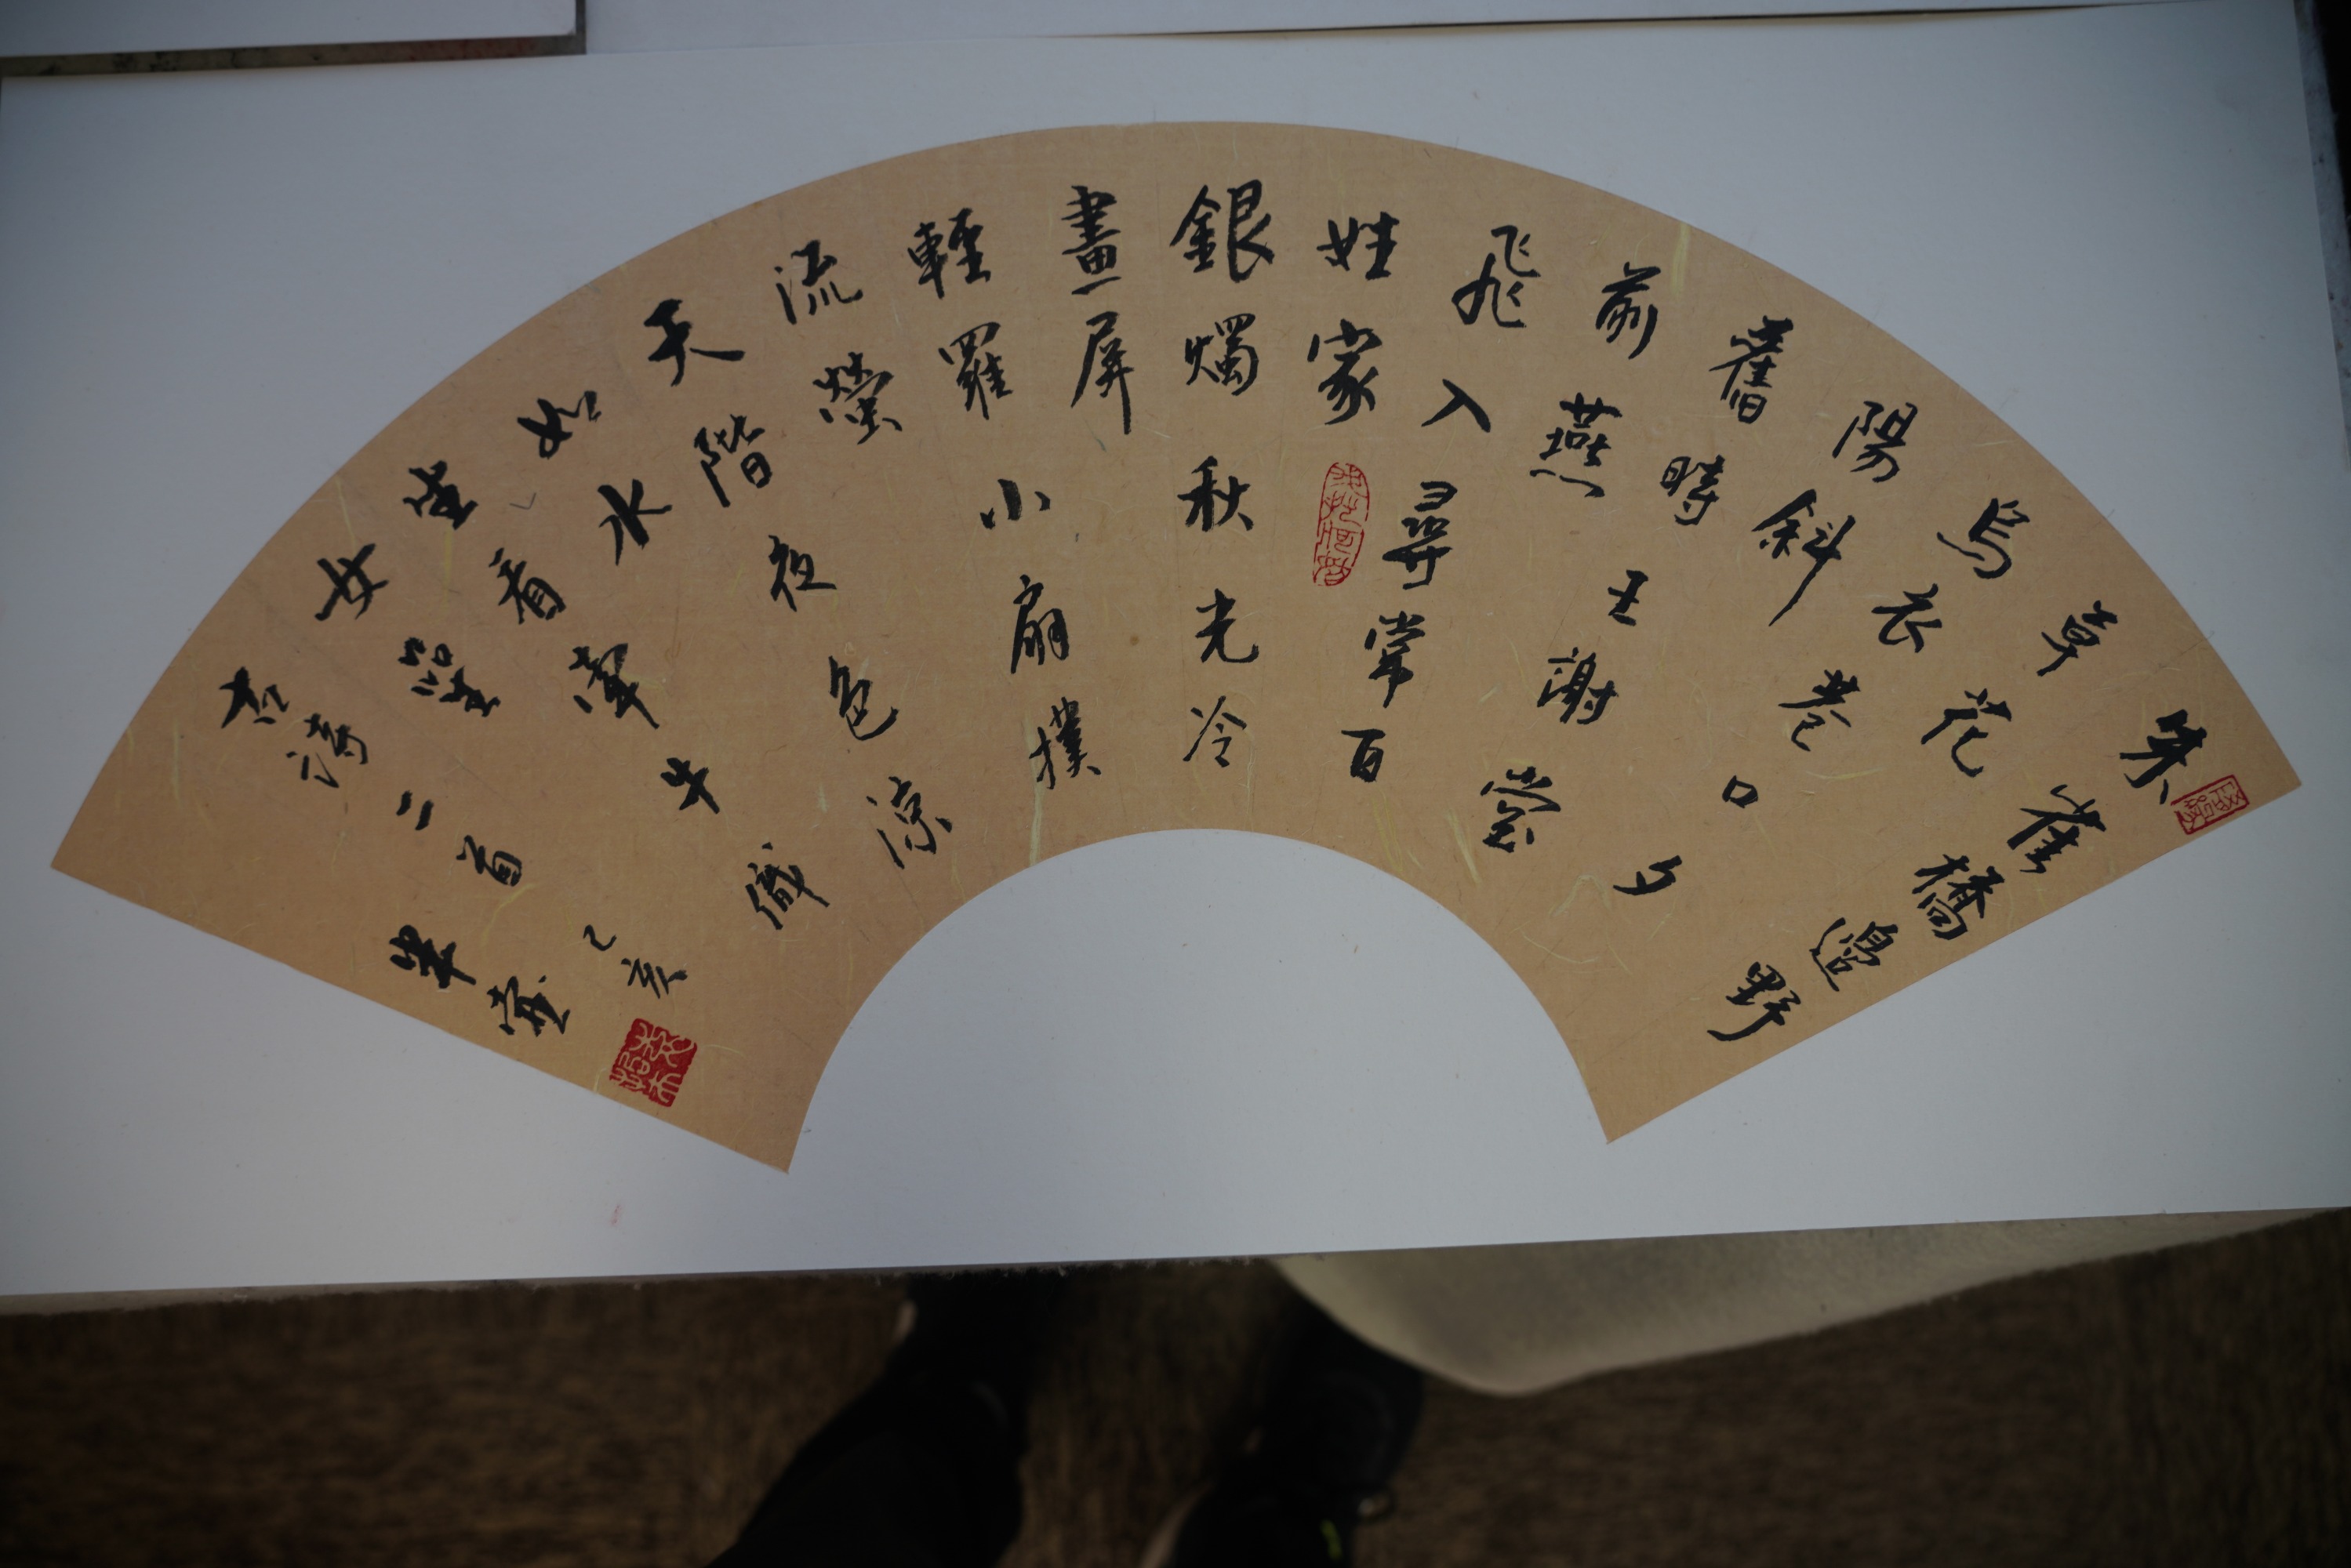 朱雀橋邊野
草花
烏衣巷口夕
陽斜
舊時王謝堂
前燕
飛入尋常百
姓家
銀燭秋光冷
畫屏
輕羅小扇撲
流螢
天階夜色涼
如水
坐看牽牛織
女星
古詩二首己亥